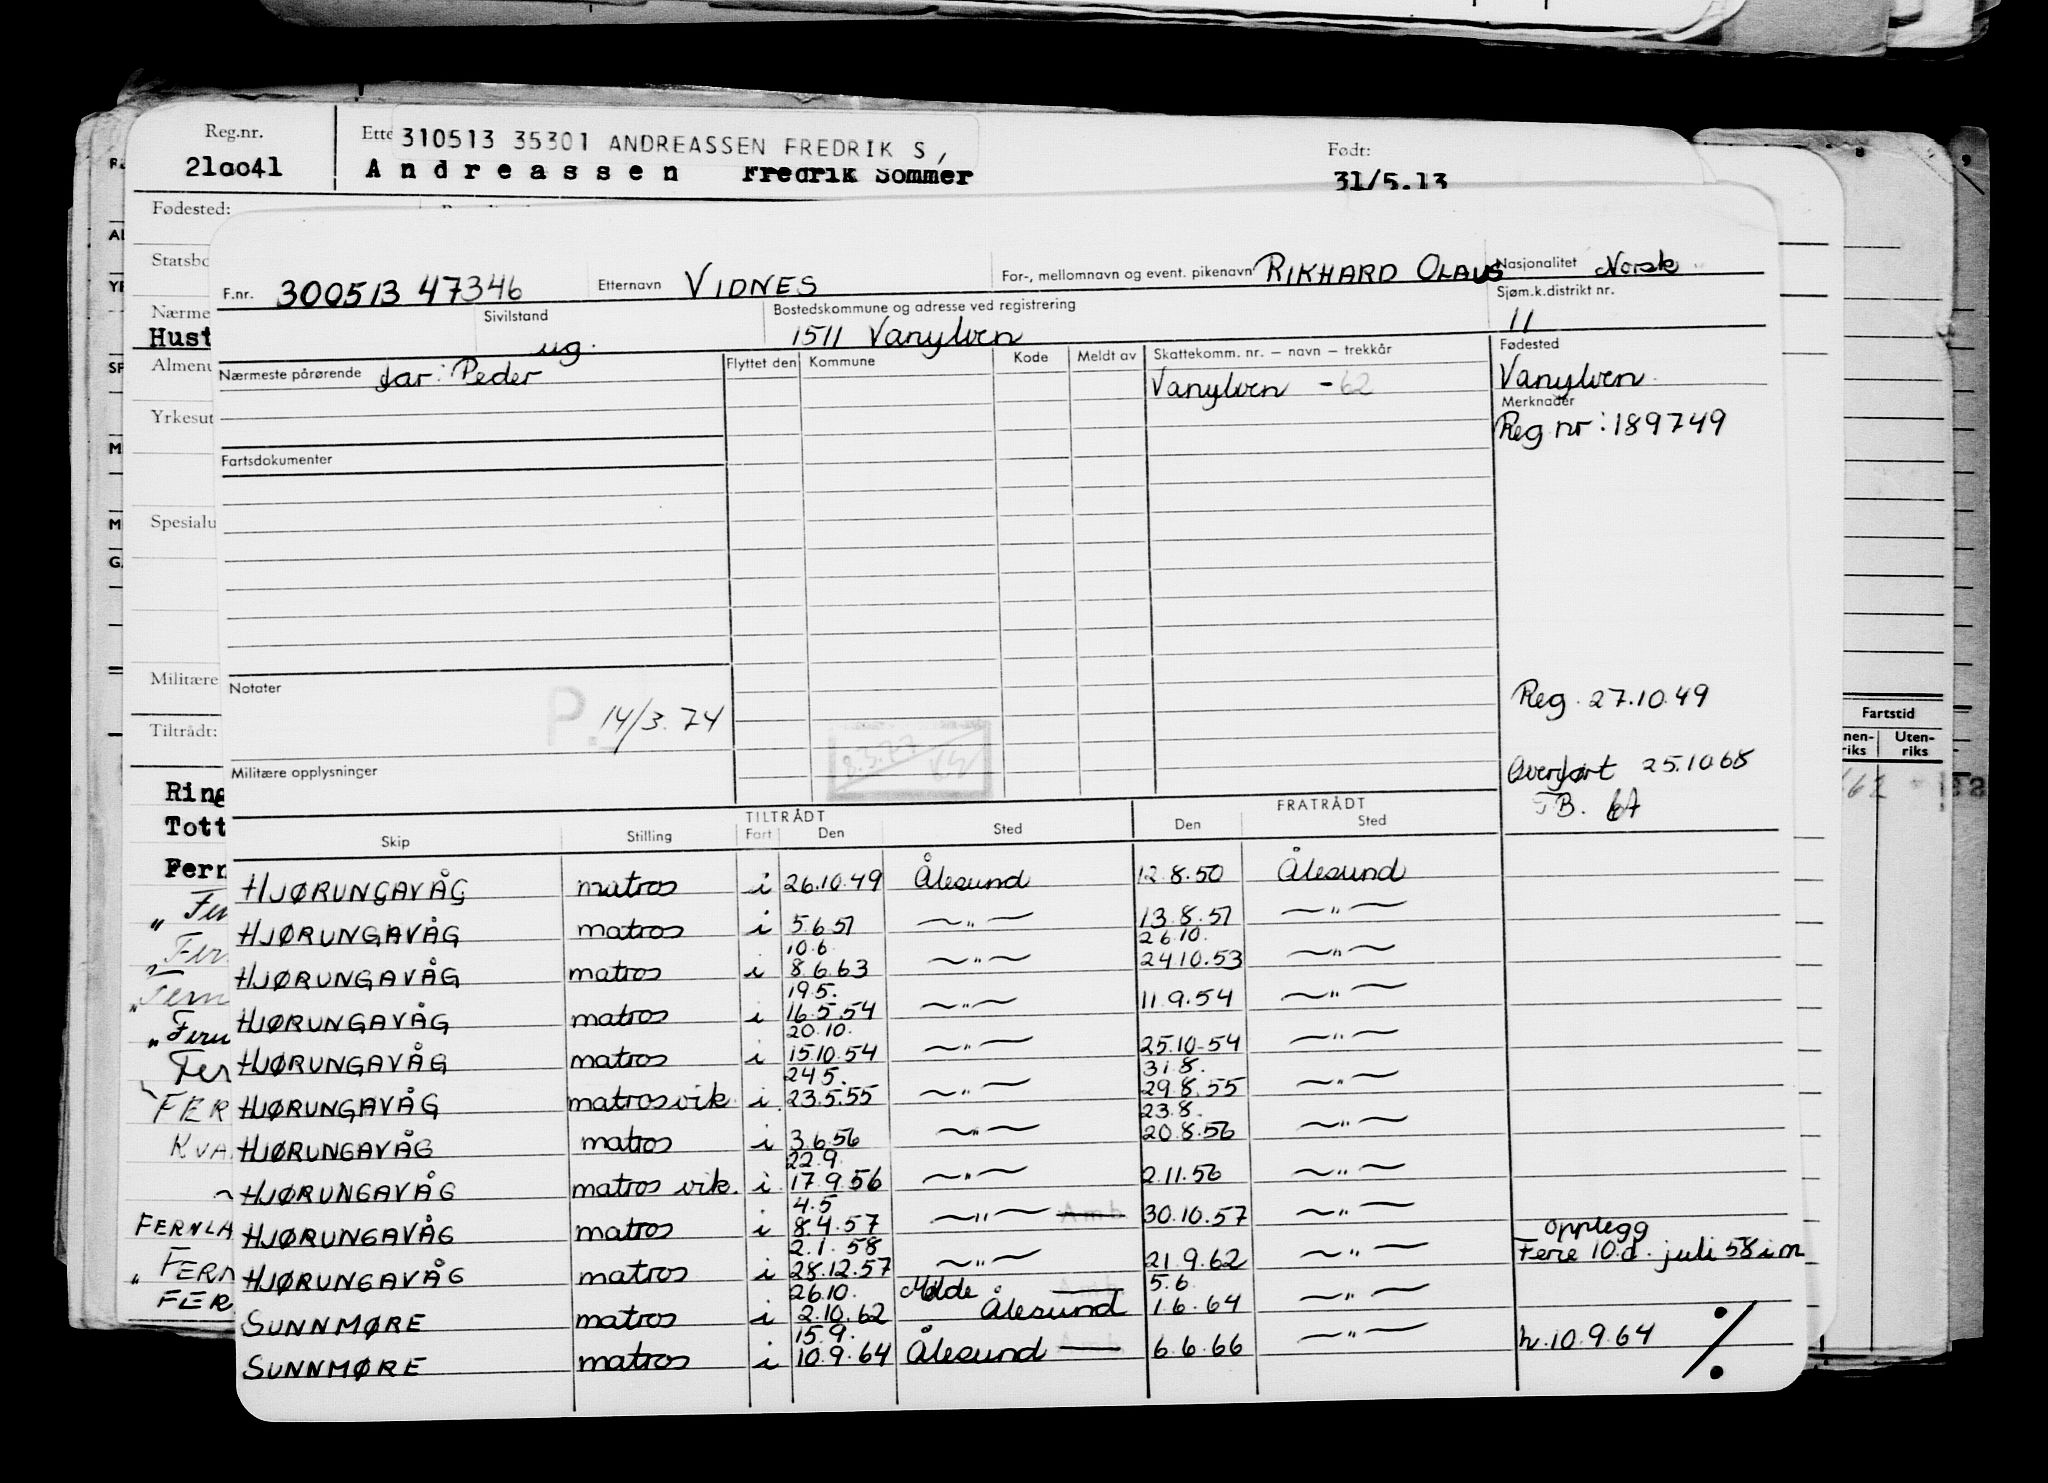 Reg.nr.
21ao41
310513 35301 ANDREASSEN FREDRIK S,
Andreassen Fredrik Sommer
Født:
31/5.13
Fødested:
Statsbo
Nærme
Hust
Almenu
Yrkesut
Spesialu
Militære
Tiltrådt:
Ring
Tott
Fern
Fartstid
Uten-
riks
F.nr. 300513 47346 Etternavn VIDNES For-, mellomnavn og event. pikenavn RIKHARD OLAUS Nasjonalitet Norsk
Sivilstand ug. Bostedskommune og adresse ved registrering 1511 Vanylven Sjøm.k.distrikt nr. 11
Nærmeste pårørende far: Peder Flyttet den Kommune Kode Meldt av Skattekomm. nr. – navn – trekkår Fødested
Vanylven -62 Vanylven
Merknader
Reg nr: 189749
Fartsdokumenter
Notater
P. 14/3.74
Reg. 27.10.49
Militære opplysninger
Overført 25.10 68
TILTRÅDT FRATRÅDT
Skip Stilling Fart Den Sted Den Sted
HJØRUNGAVÅG matros i 26.10.49 Ålesund 12.8.50 Ålesund
HJØRUNGAVÅG matros i 5.6.51 —"— 13.8.51 —"—
10.6 26.10.
HJØRUNGAVÅG matros i 8.6.63 —"— 24.10.53 —"—
19.5.
HJØRUNGAVÅG matros i 16.5.54 —"— 11.9.54 —"—
20.10.
HJØRUNGAVÅG matros i 15.10.54 —"— 25.10.54 —"—
24.5. 31.8.
HJØRUNGAVÅG matros vik. i 23.5.55 —"— 29.8.55 —"—
23.8.
HJØRUNGAVÅG matros i 3.6.56 —"— 20.8.56 —"—
22.9.
HJØRUNGAVÅG matros vik. i 17.9.56 —"— 2.11.56 —"—
4.5
HJØRUNGAVÅG matros i 8.4.57 —"— Amb 30.10.57 —"— opplegg
2.1.58
HJØRUNGAVÅG matros i 28.12.57 —"— 21.9.62 —"— Ferie 10.d. juli 58 i m
26.10. Molde 5.6.
SUNNMØRE matros i 2.10.62 Ålesund 1.6.64 —"—
15.9.
SUNNMØRE matros i 10.9.64 Ålesund Amb 6.6.66 —"— h. 10.9.64